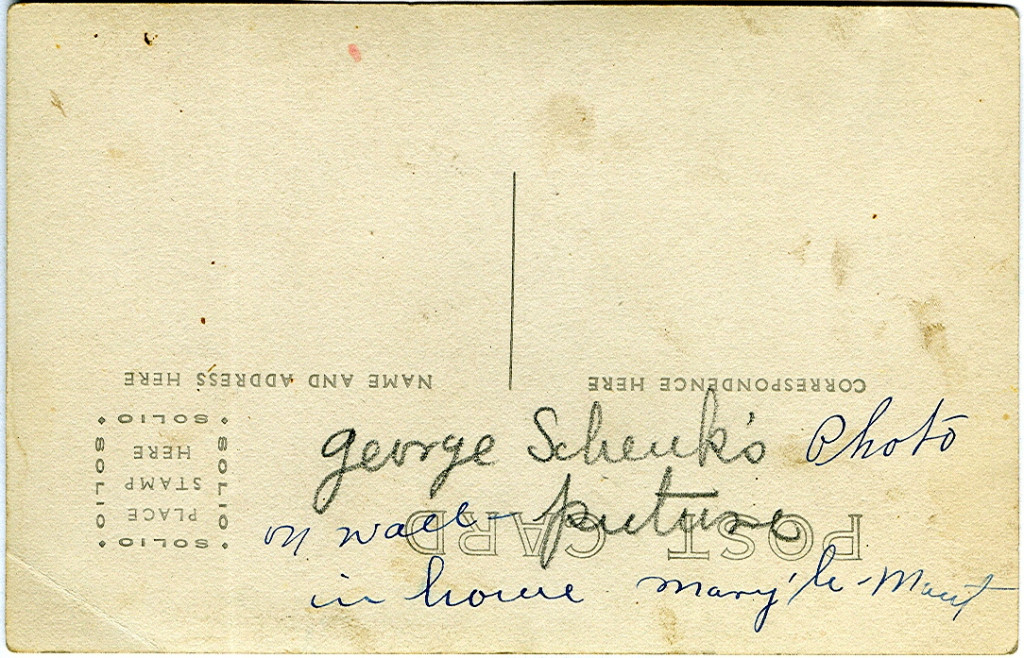 NAME AND ADDRESS HERE
CORRESPONDENCE HERE
SOLIO
SOLIO
SOLIO
SOLIO
PLACE
STAMP
HERE
POST CARD
george Schenk's Photo
on wall picture
in home Mary